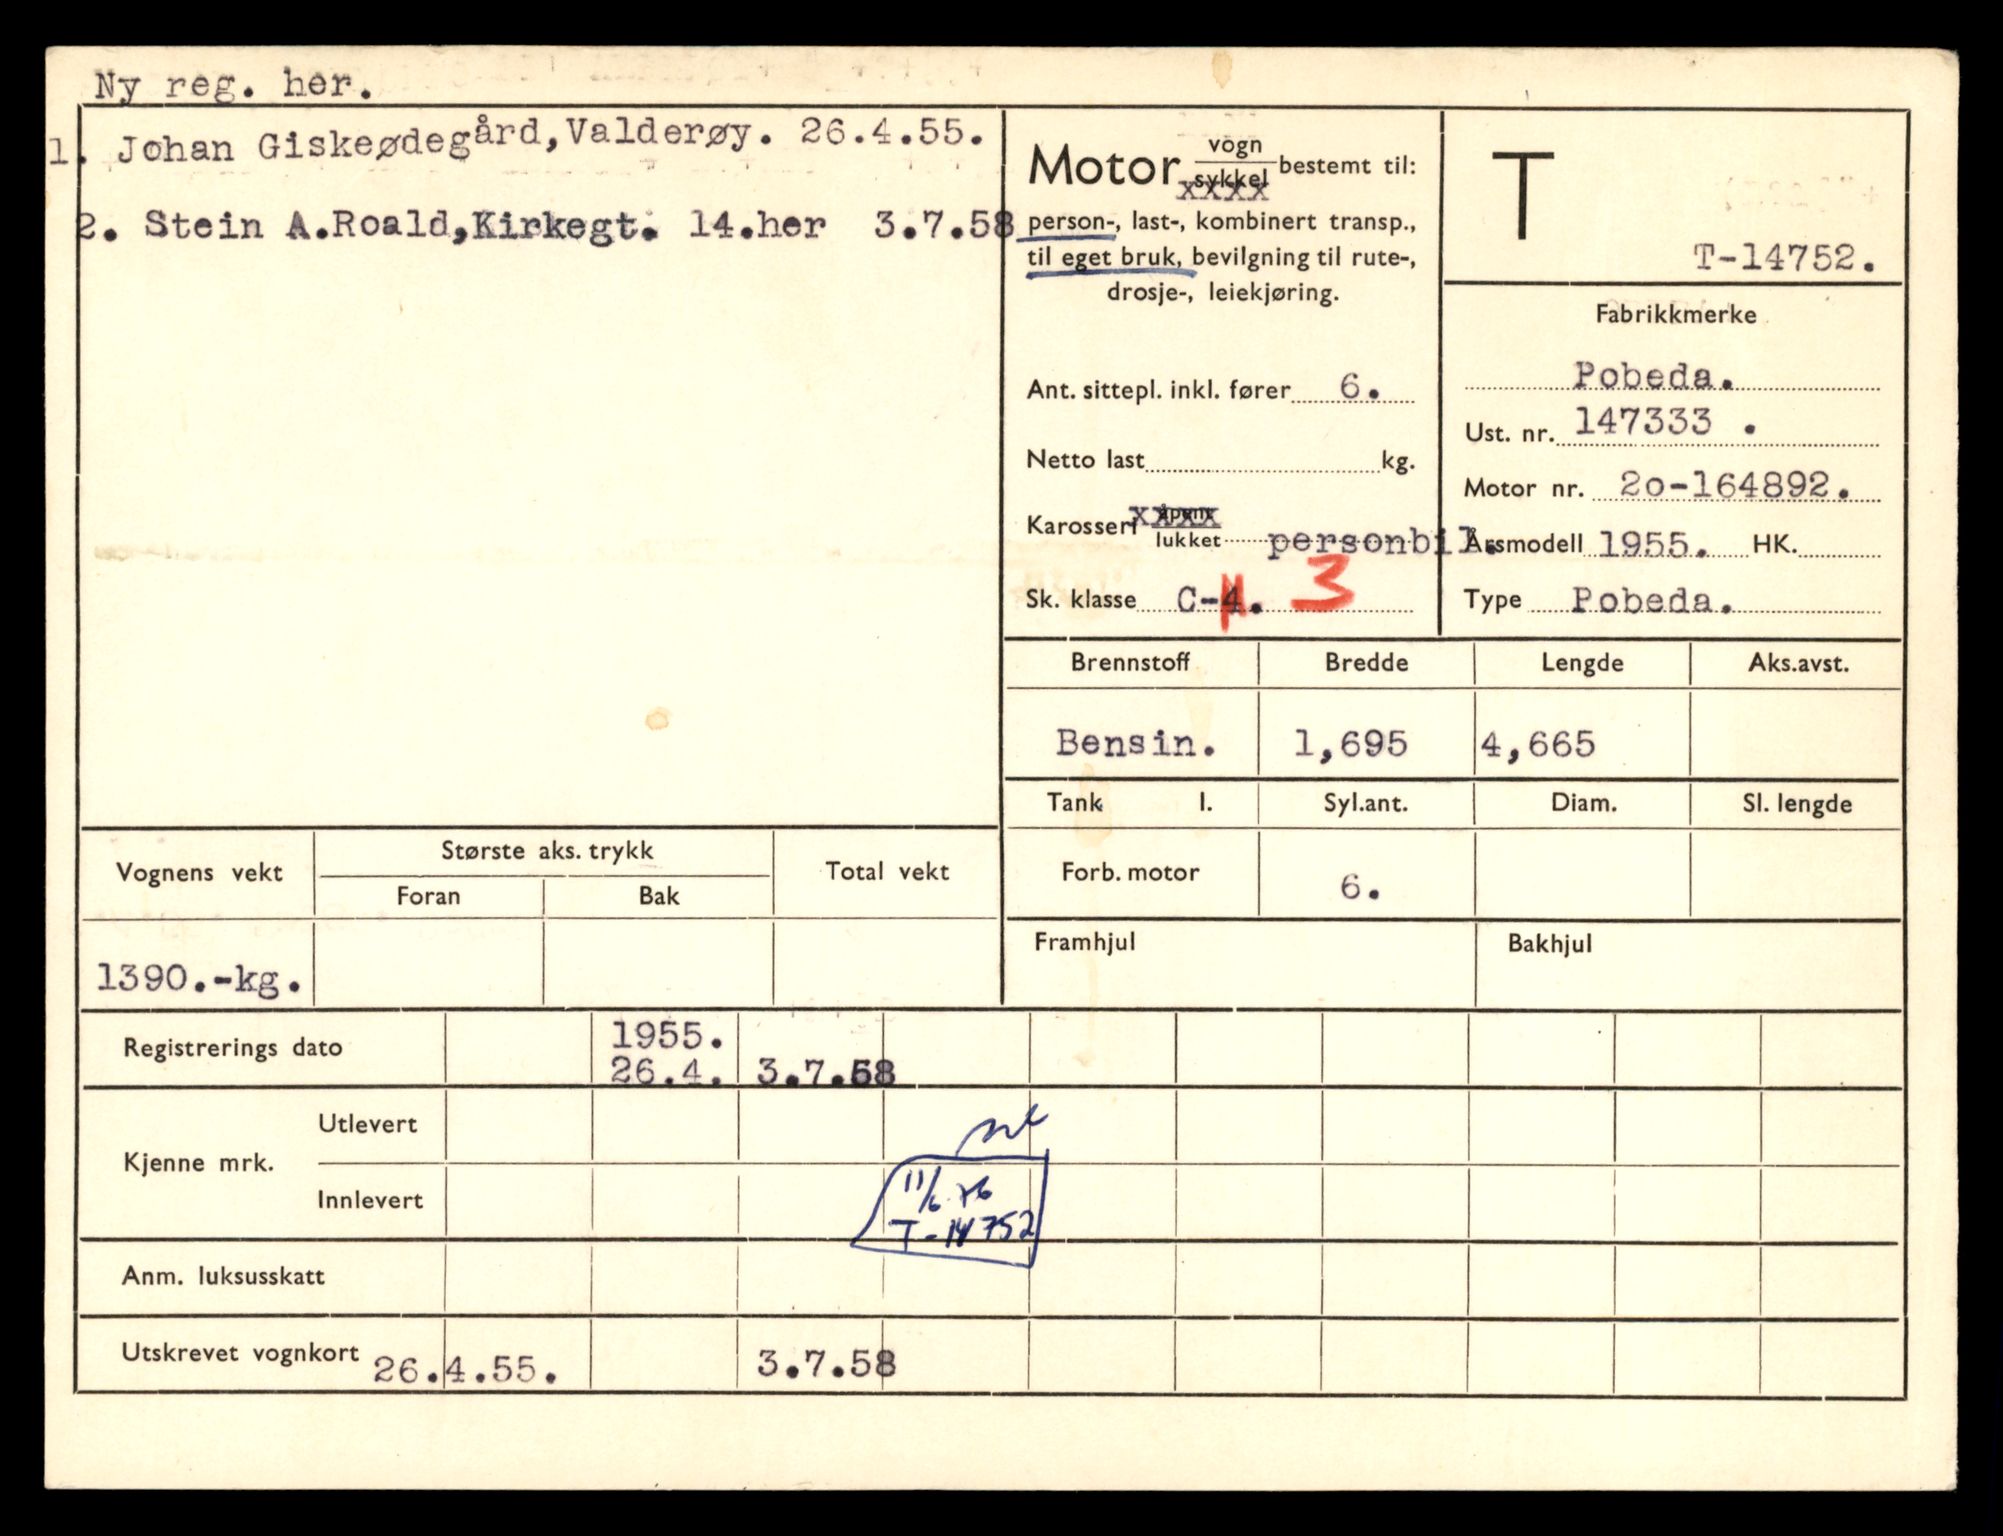 Ny reg. her.
1. Johan Giskeødegård, Valderøy. 26.4.55.
2. Stein A.Roald, Kirkegt. 14.her 3.7.58
Motor vogn sykkel bestemt til:
person-, last-, kombinert transp.,
til eget bruk, bevilgning til rute-,
drosje-, leiekjøring.
Ant. sittepl. inkl. fører 6.
Netto last kg.
Karosseri åpent lukket personbil.
Sk. klasse C-4. 3
T
T-14752.
Fabrikkmerke
Pobeda.
Ust. nr. 147333 .
Motor nr. 2o-164892.
Årsmodell 1955. HK.
Type Pobeda.
Brennstoff Bredde Lengde Aks.avst.
Bensin. 1,695 4,665
Tank l. Syl.ant. Diam. Sl. lengde
Forb. motor 6.
Framhjul Bakhjul
Vognens vekt Største aks. trykk Total vekt
Foran Bak
1390.-kg.
Registrerings dato 1955.
26.4. 3.7.58
Kjenne mrk. Utlevert
Innlevert
11/6 76
T-14752
Anm. luksusskatt
Utskrevet vognkort 26.4.55. 3.7.58